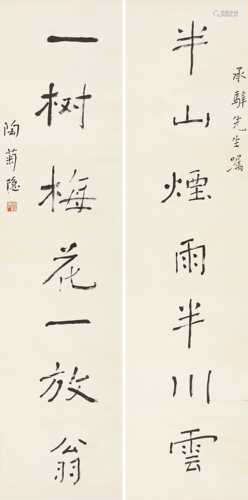 承驊先生嘱
半山煙雨半川雲
一树梅花一放翁
陶菊隐